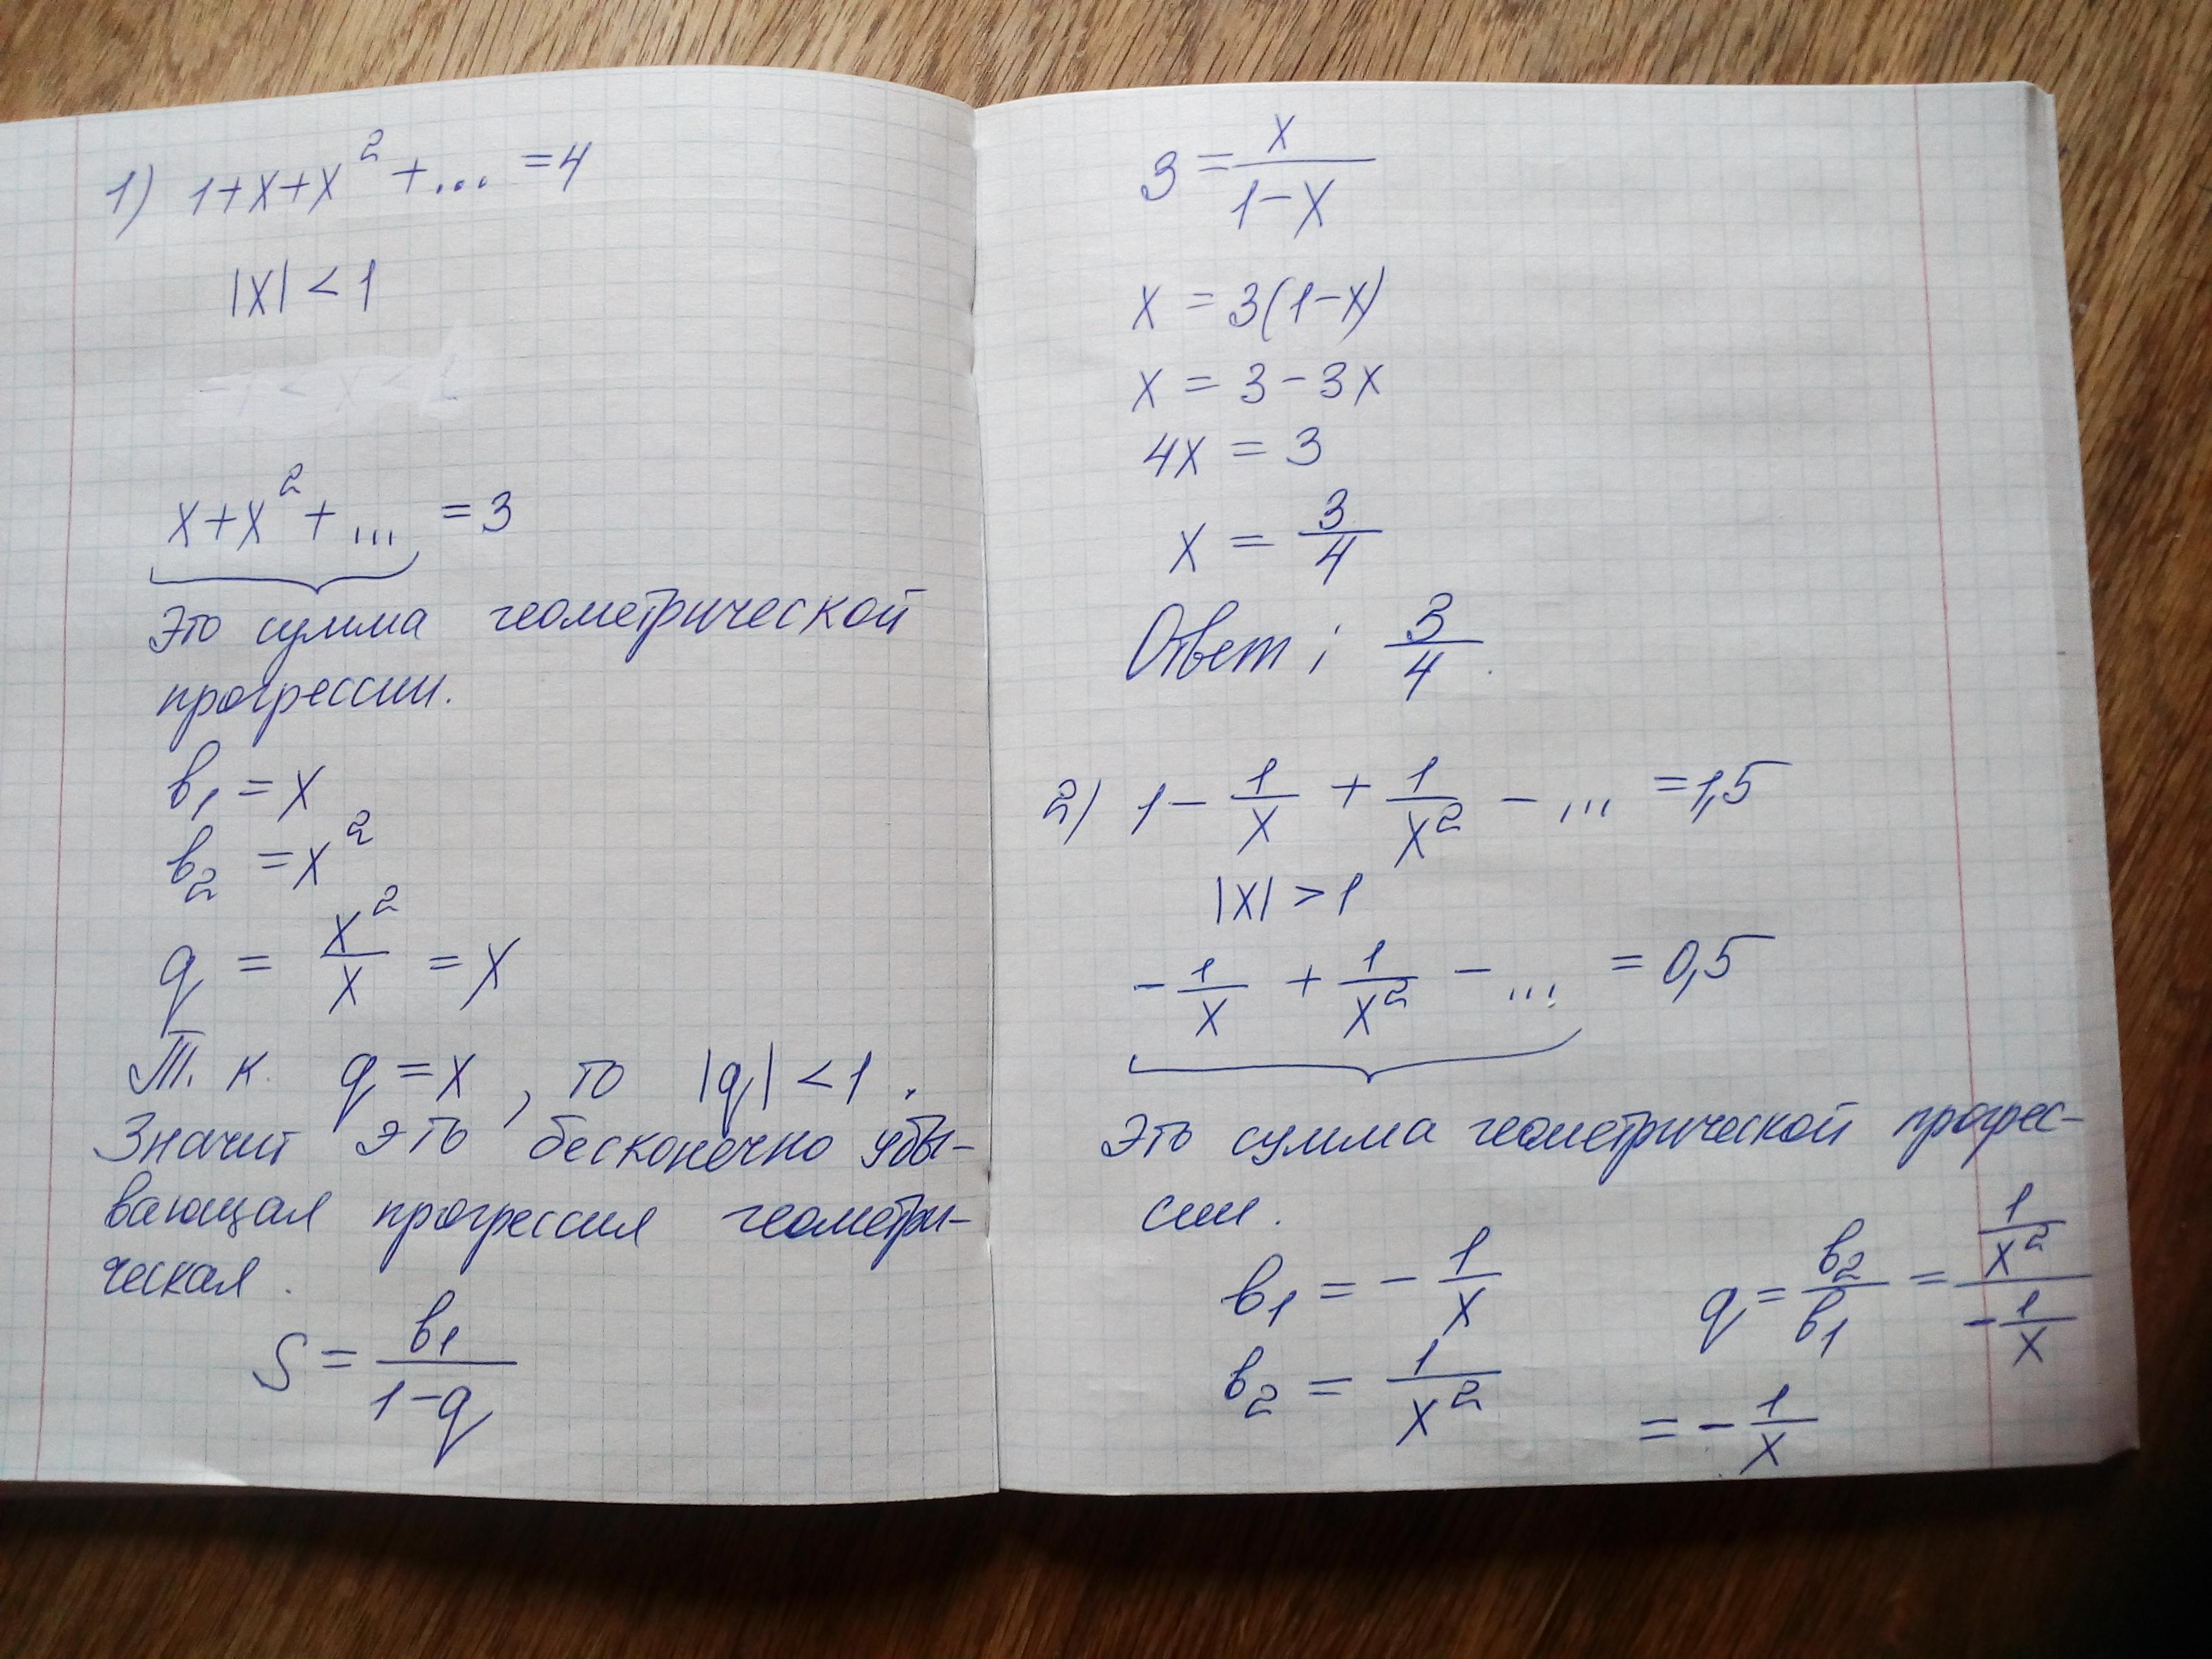 1) 1+x+x² +... =4
|x| < 1
x+x² + ... = 3
Это сумма геометрической
прогрессии.
b₁ = x
b₂ = x²
q = x²/x = x
Т. к. q = x , то |q| < 1 .
Значит это бесконечно убы-
вающая прогрессия геометри-
ческая .
S = b₁/(1-q)
3 = x/(1-x)
x = 3(1-x)
x = 3 - 3x
4x = 3
x = 3/4
Ответ : 3/4 .
2) 1 - 1/x + 1/x² - ... = 1,5
|x| > 1
- 1/x + 1/x² - ... = 0,5
Это сумма геометрической прогрес-
сии .
b₁ = - 1/x
b₂ = 1/x²
q = b₂/b₁ = (1/x²)/(-1/x)
= - 1/x